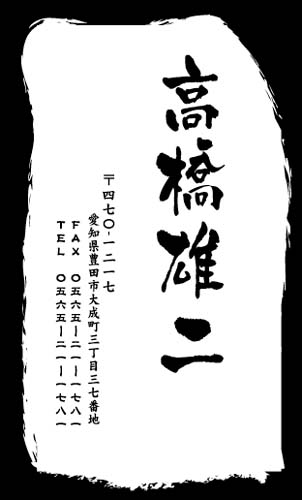 高橋雄二
〒四七〇-一二一七
愛知県豊田市大成町三丁目三七番地
FAX 〇五六五ー二一ー一七八一
TEL 〇五六五ー二一ー一七八一